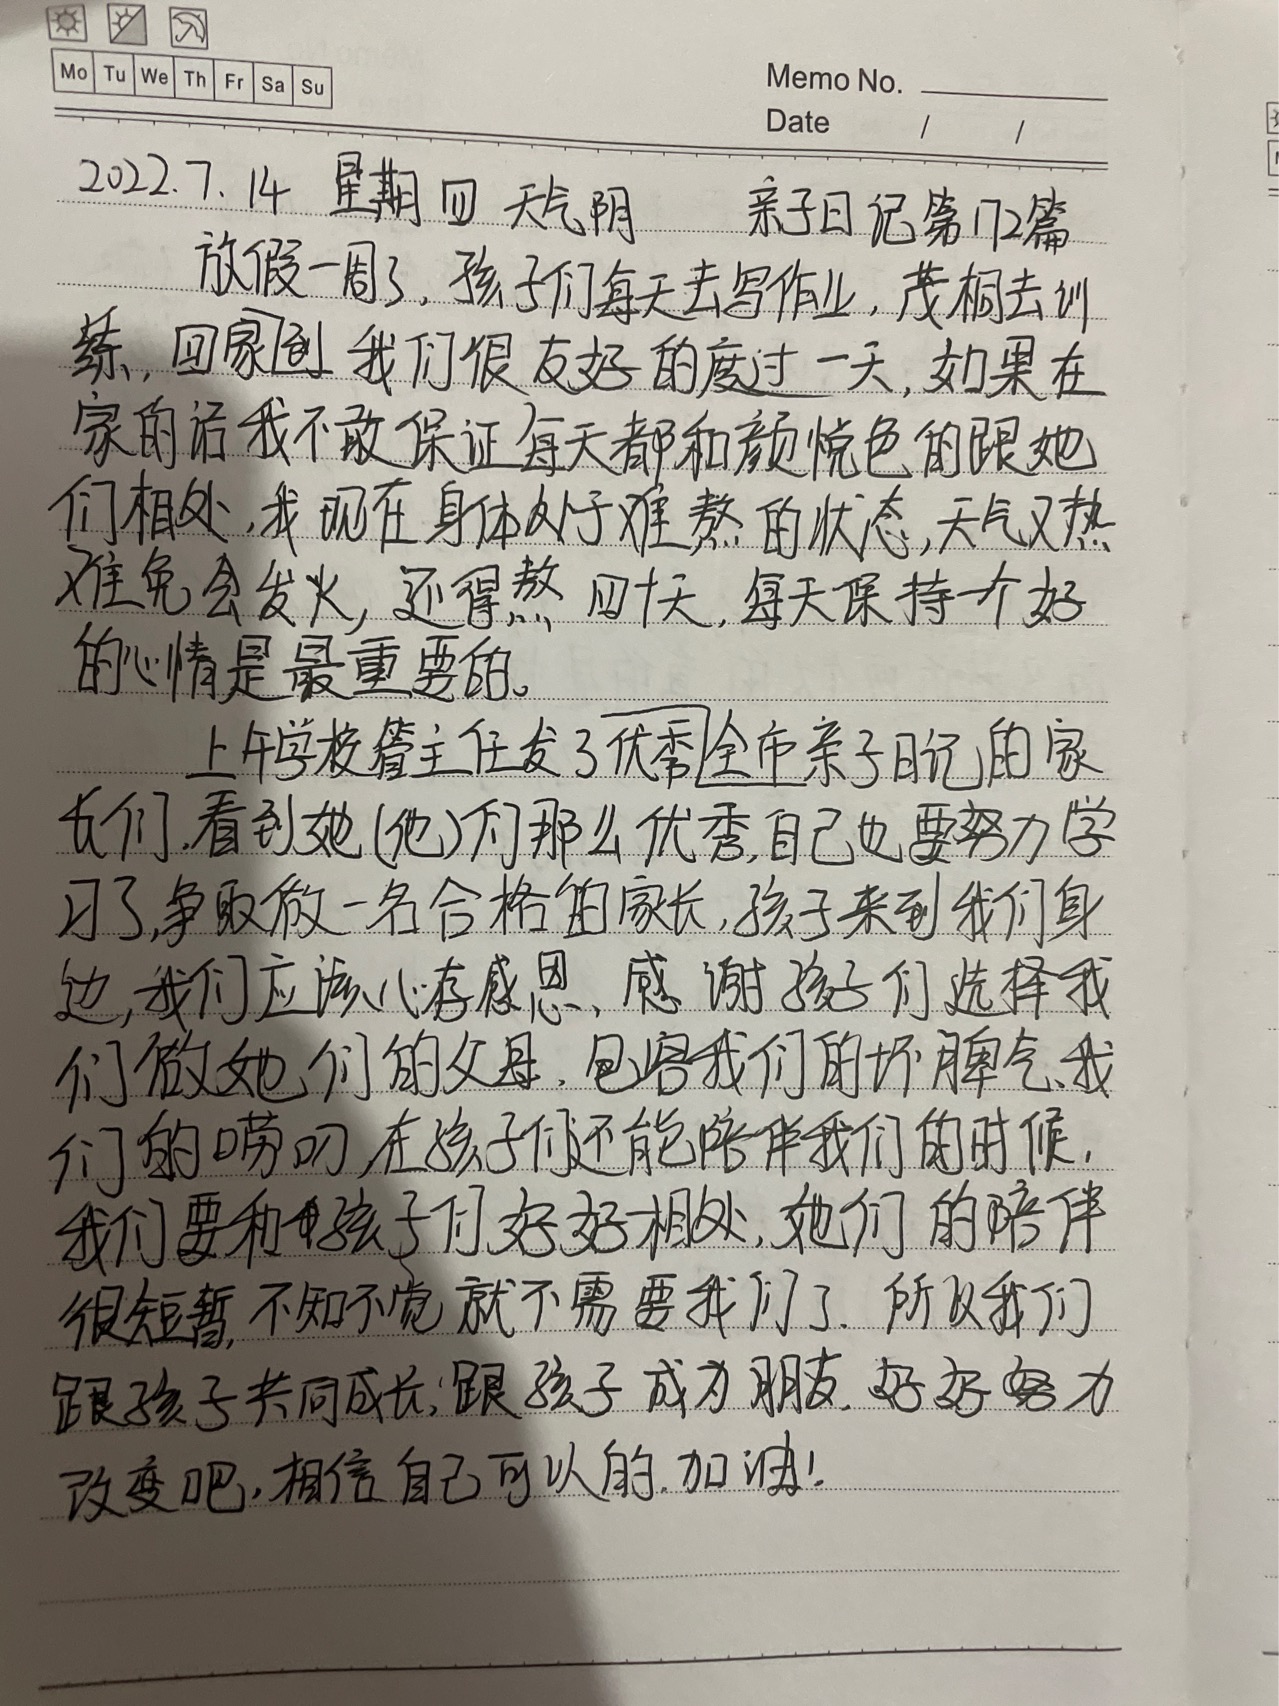 Mo Tu We Th Fr Sa Su
Memo No.
Date / /
2022.7.14 星期四 天气阴 亲子日记第172篇
放假一周了，孩子们每天去写作业，茂桐去训
练，回家到我们很友好的度过一天，如果在
家的话我不敢保证每天都和颜悦色的跟她
们相处，我现在身体处于难熬的状态，天气又热
难免会发火，还得熬四十天，每天保持一个好
的心情是最重要的。
上午学校管主任发了优秀全市亲子日记的家
长们，看到她(他)们那么优秀，自己也要努力学
习了，争取做一名合格的家长，孩子来到我们身
边，我们应该心存感恩，感谢孩子们选择我
们做她们的父母，包容我们的坏脾气、我
们的唠叨，在孩子们还能陪伴我们的时候，
我们要和孩子们好好相处，她们的陪伴
很短暂，不知不觉就不需要我们了，所以我们
跟孩子共同成长，跟孩子成为朋友，好好努力
改变吧，相信自己可以的，加油！